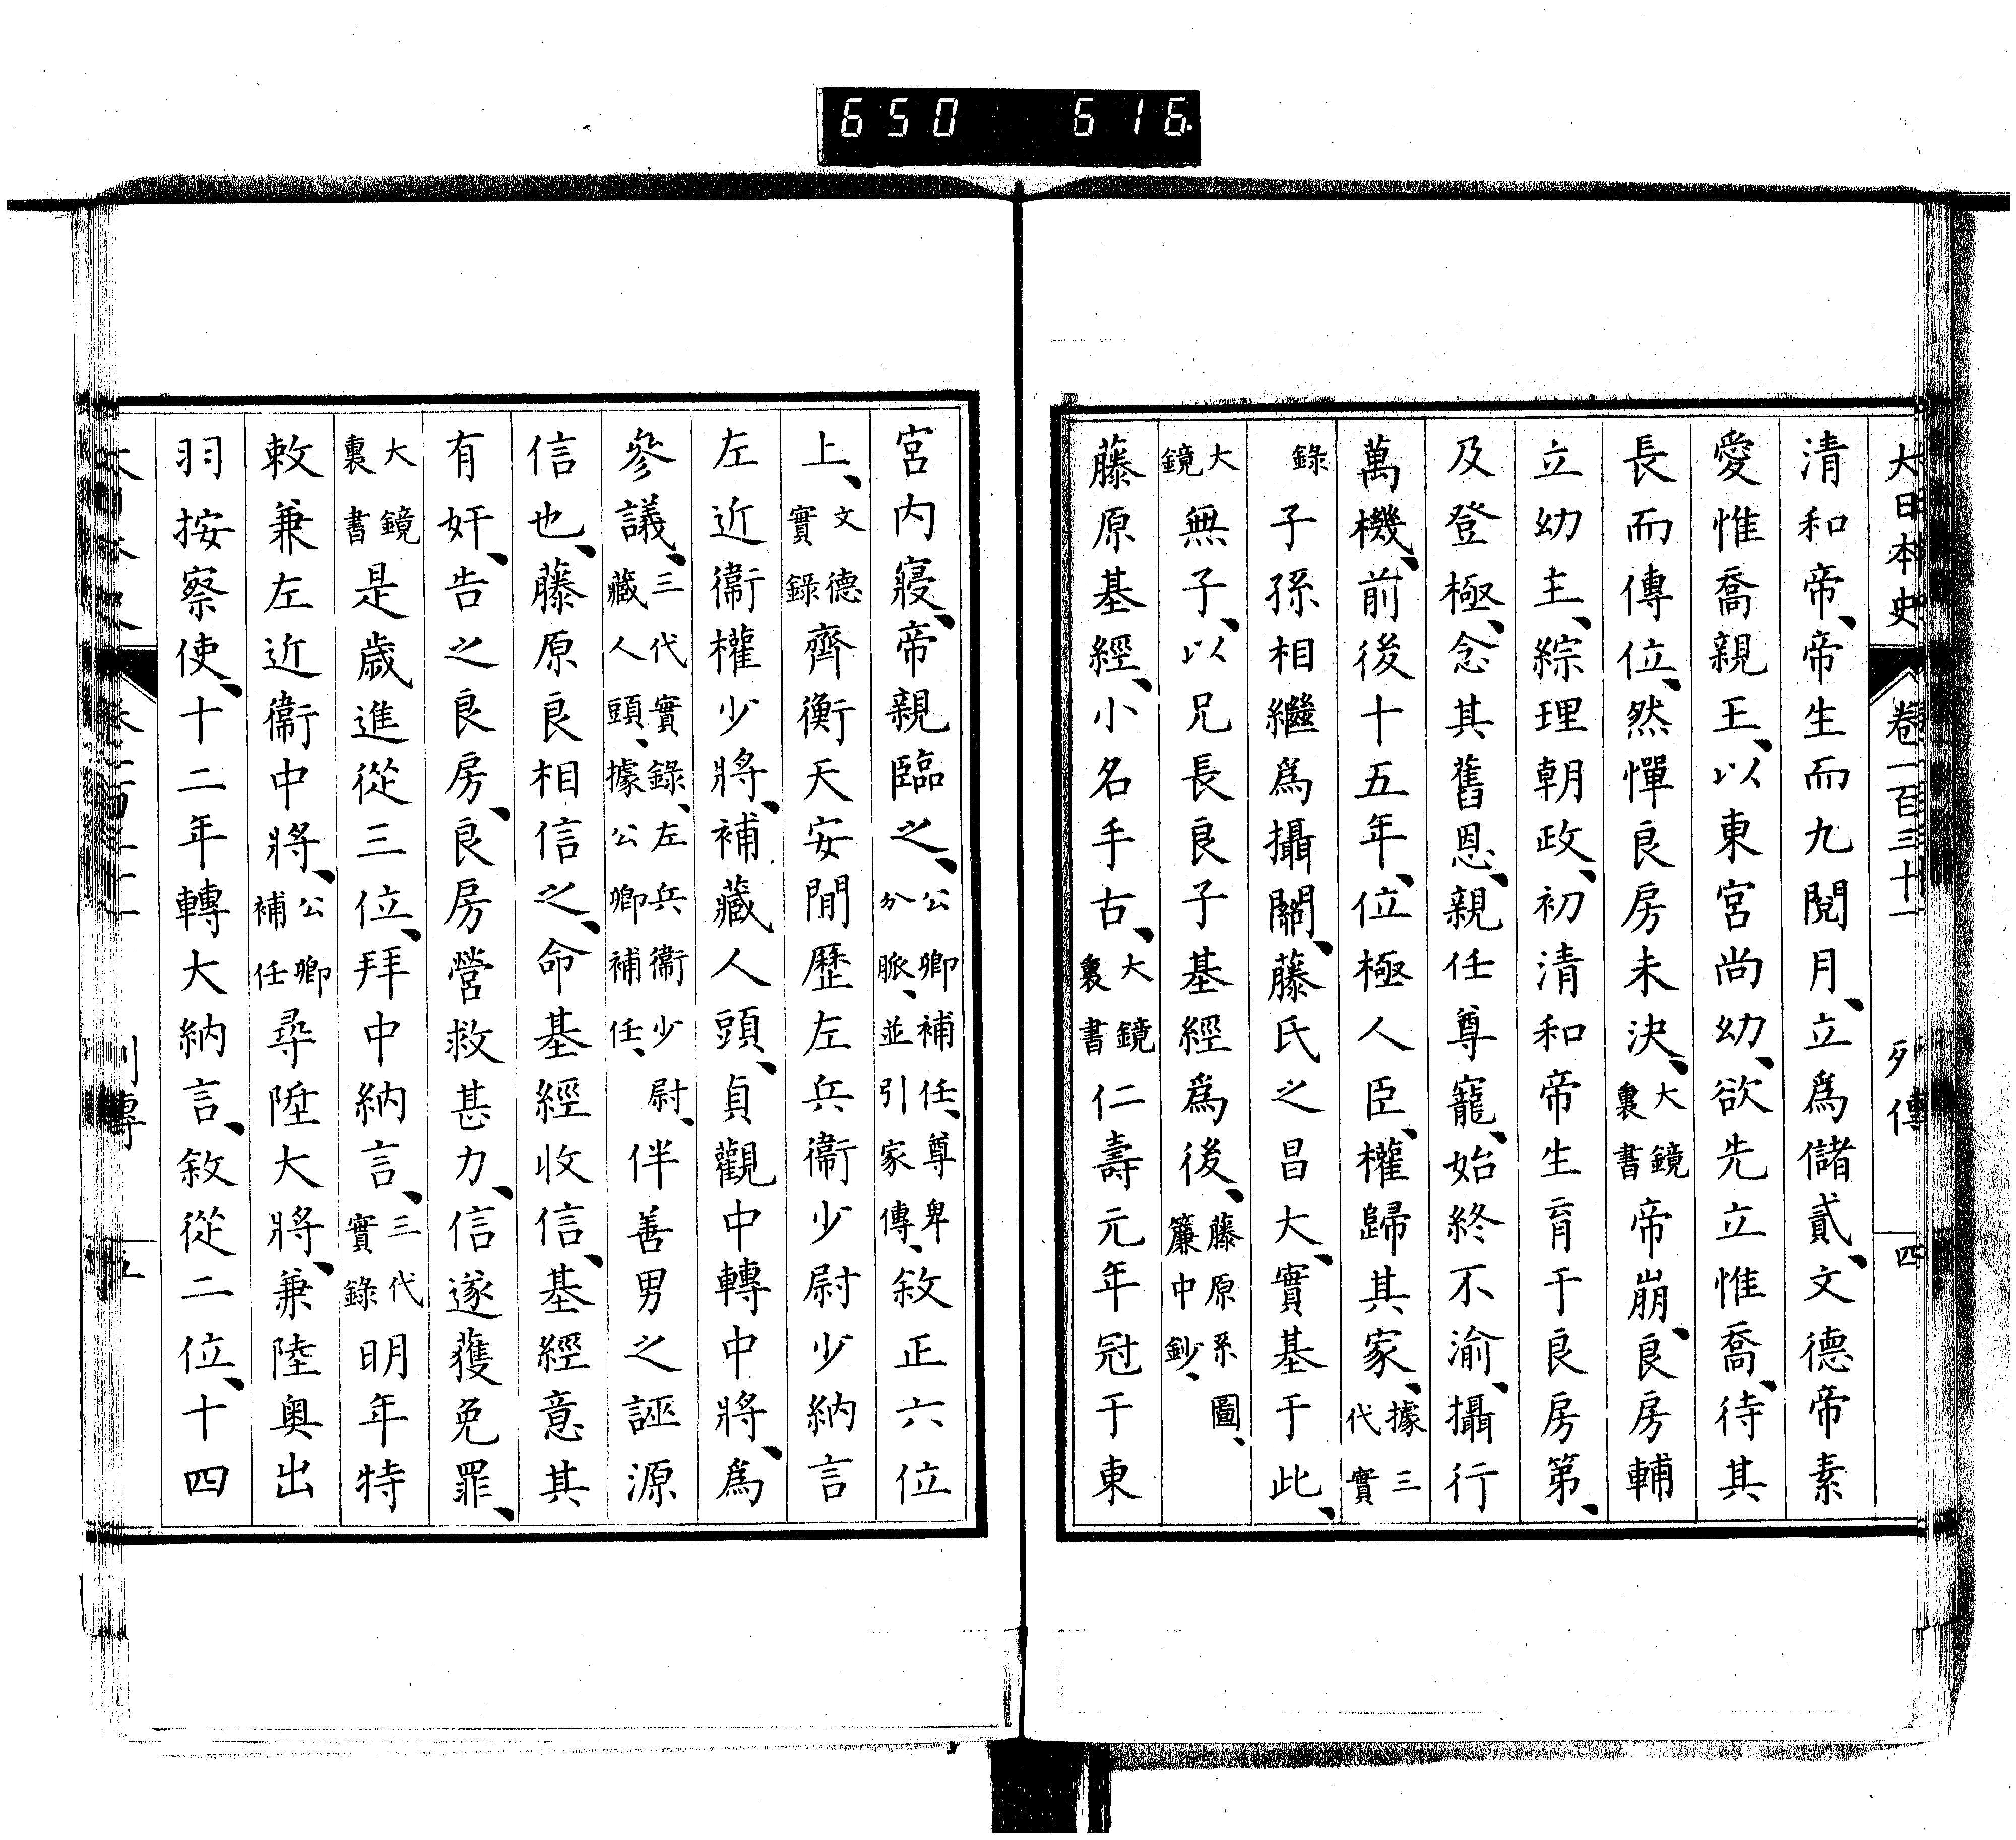 650 616
大日本史 卷一百三十一 列傳 四
清和帝、帝生而九閱月、立爲儲貳、文德帝素
愛惟喬親王、以東宮尚幼、欲先立惟喬、待其
長而傳位、然憚良房未決、大鏡裏書帝崩、良房輔
立幼主、綜理朝政、初清和帝生育于良房第、
及登極、念其舊恩、親任尊寵、始終不渝、攝行
萬機、前後十五年、位極人臣、權歸其家、據三代實
錄子孫相繼爲攝關、藤氏之昌大、實基于此、
大鏡無子、以兄長良子基經爲後、藤原系圖、簾中鈔、
藤原基經、小名手古、大鏡裏書仁壽元年冠于東
宮內寢、帝親臨之、公卿補任、尊卑分脈、並引家傳、敘正六位
上、文德實錄齊衡天安閒歷左兵衞少尉少納言
左近衞權少將、補藏人頭、貞觀中轉中將、爲
參議、三代實錄、左兵衞少尉、藏人頭、據公卿補任、伴善男之誣源
信也、藤原良相信之、命基經收信、基經意其
有奸、告之良房、良房營救甚力、信遂獲免罪、
大鏡裏書是歲進從三位、拜中納言、三代實錄明年特
敕兼左近衞中將、公卿補任尋陞大將、兼陸奧出
羽按察使、十二年轉大納言、敘從二位、十四